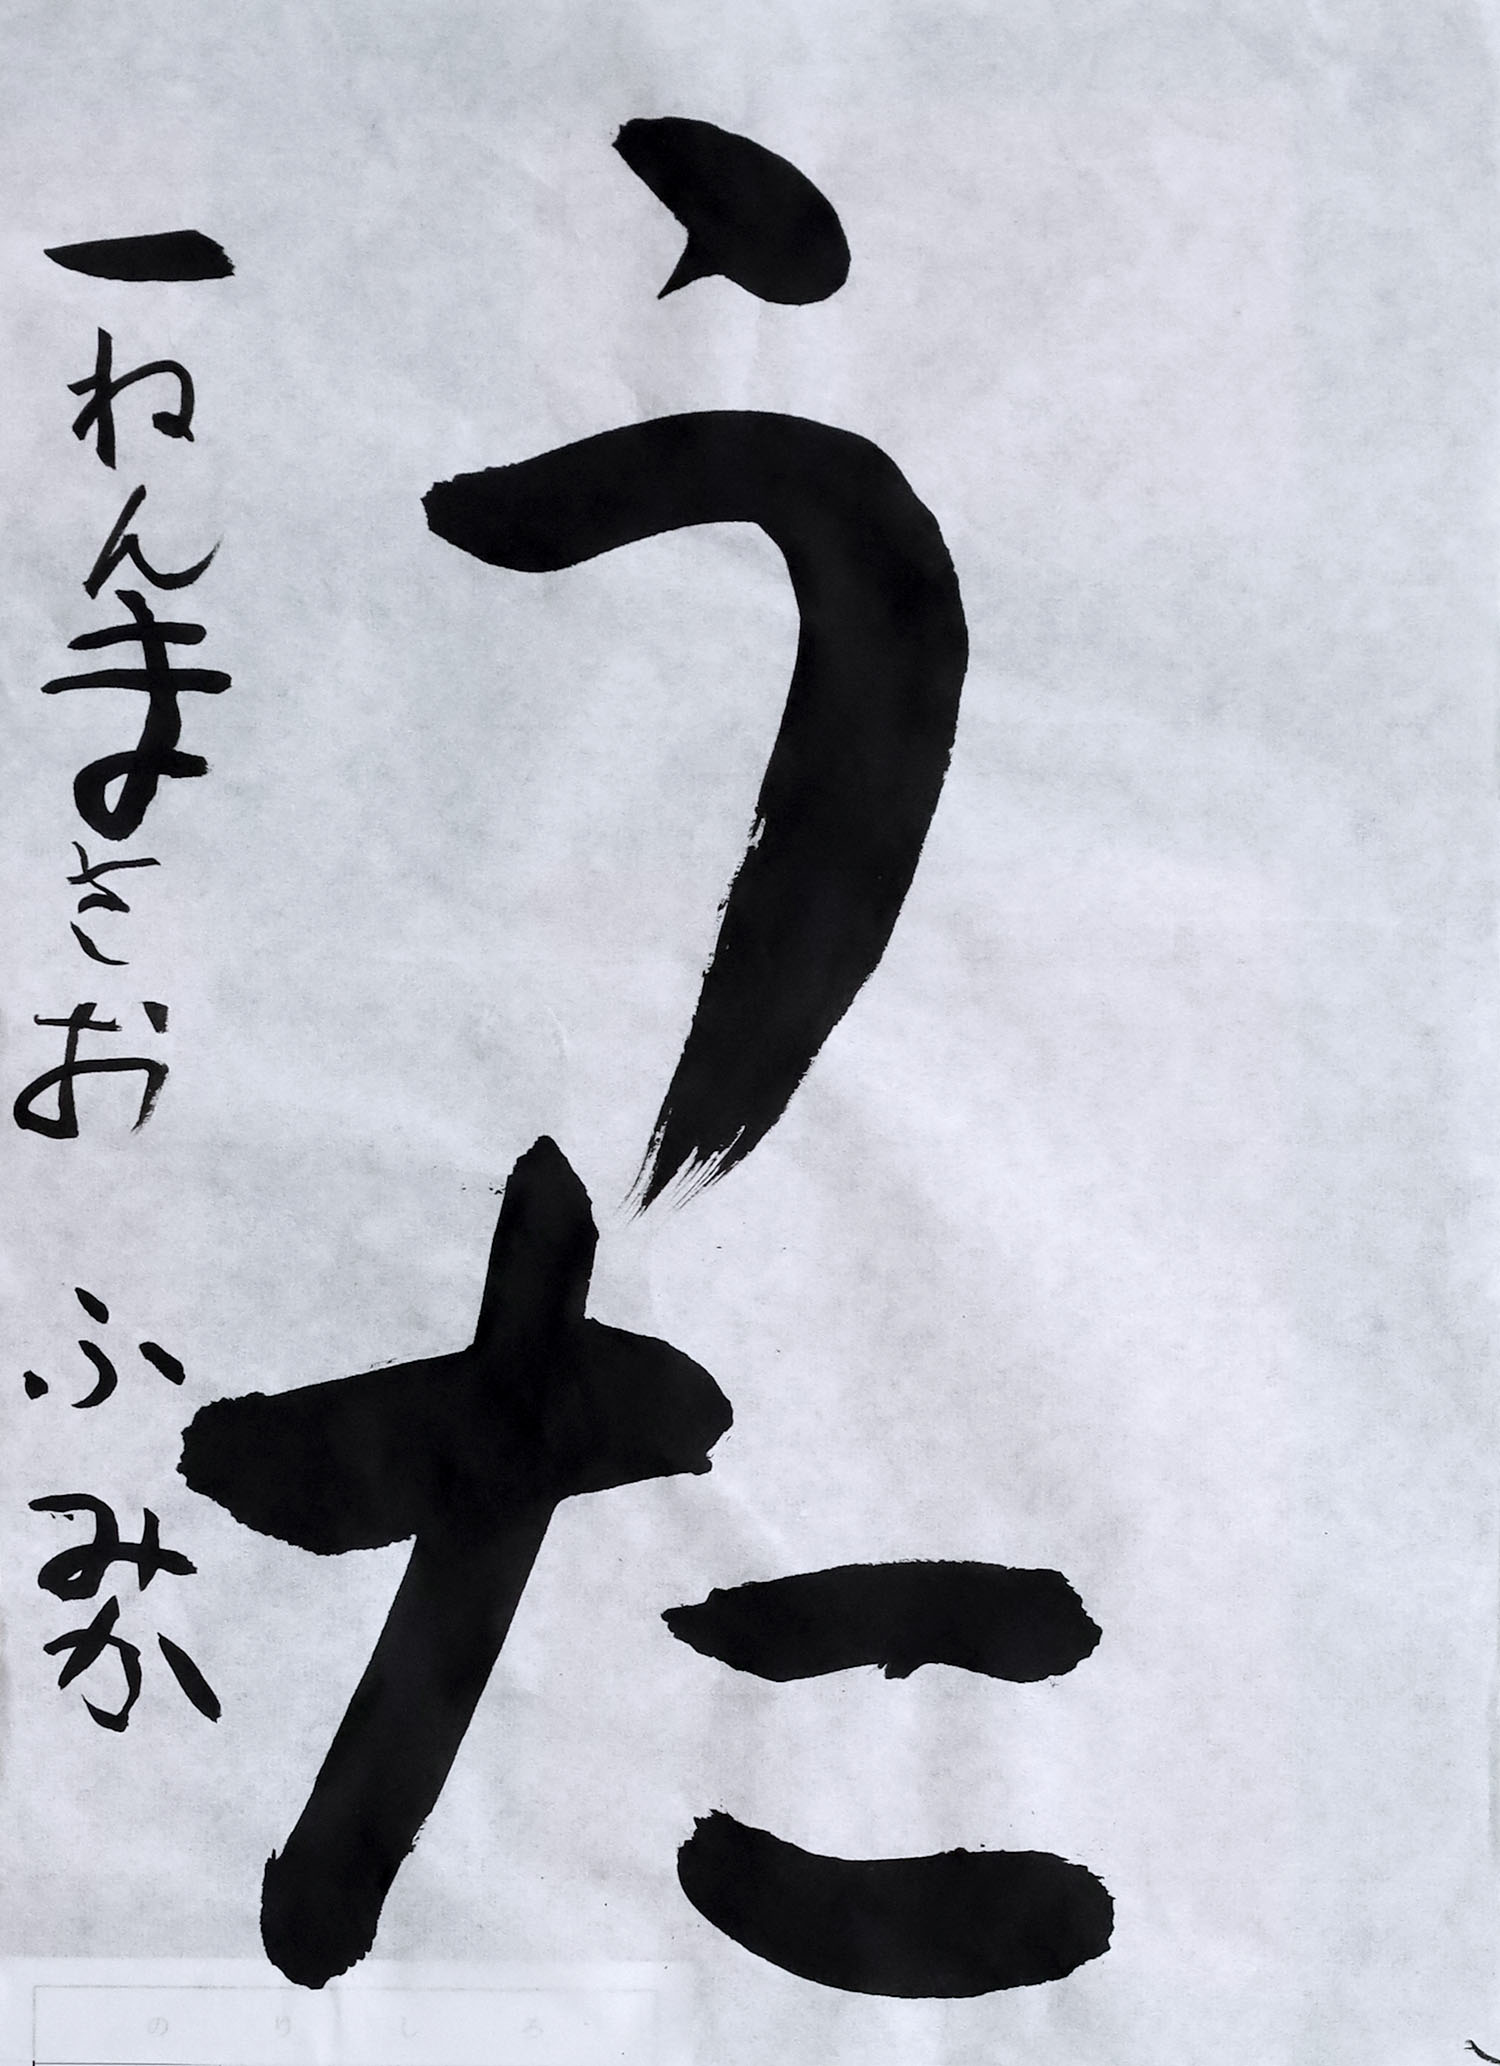 うた
一ねんまさお ふみか
のりしろ